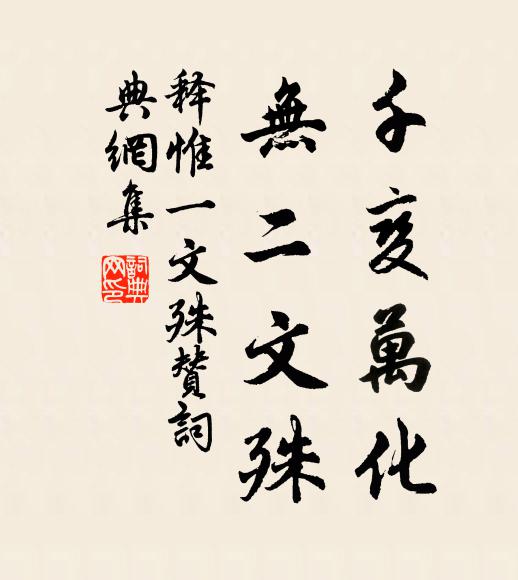 千变萬化
無二文殊
释惟一文殊賛詞
典網集
詞典网印